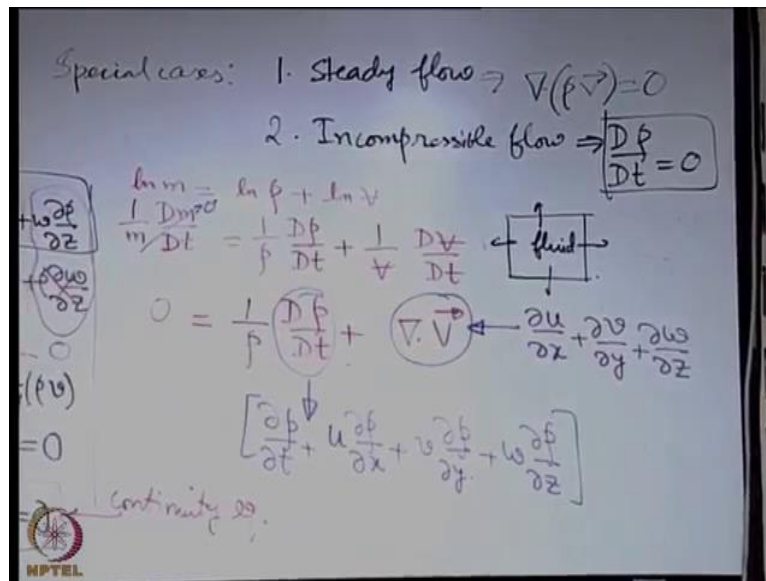 Special cases: 1. Steady flow ⇒ ∇.(ρV⃗)=0
2. Incompressible flow ⇒ Dρ/Dt = 0
ln m = ln ρ + ln V
1/m Dm/Dt = 1/ρ Dρ/Dt + 1/V DV/Dt
=0
fluid
+w ∂ρ/∂z
0 = 1/ρ Dρ/Dt + ∇.V⃗
∂u/∂x + ∂v/∂y + ∂w/∂z
[∂ρ/∂t + u ∂ρ/∂x + v ∂ρ/∂y + w ∂ρ/∂z]
(ρv)
=0
continuity eq.
NPTEL